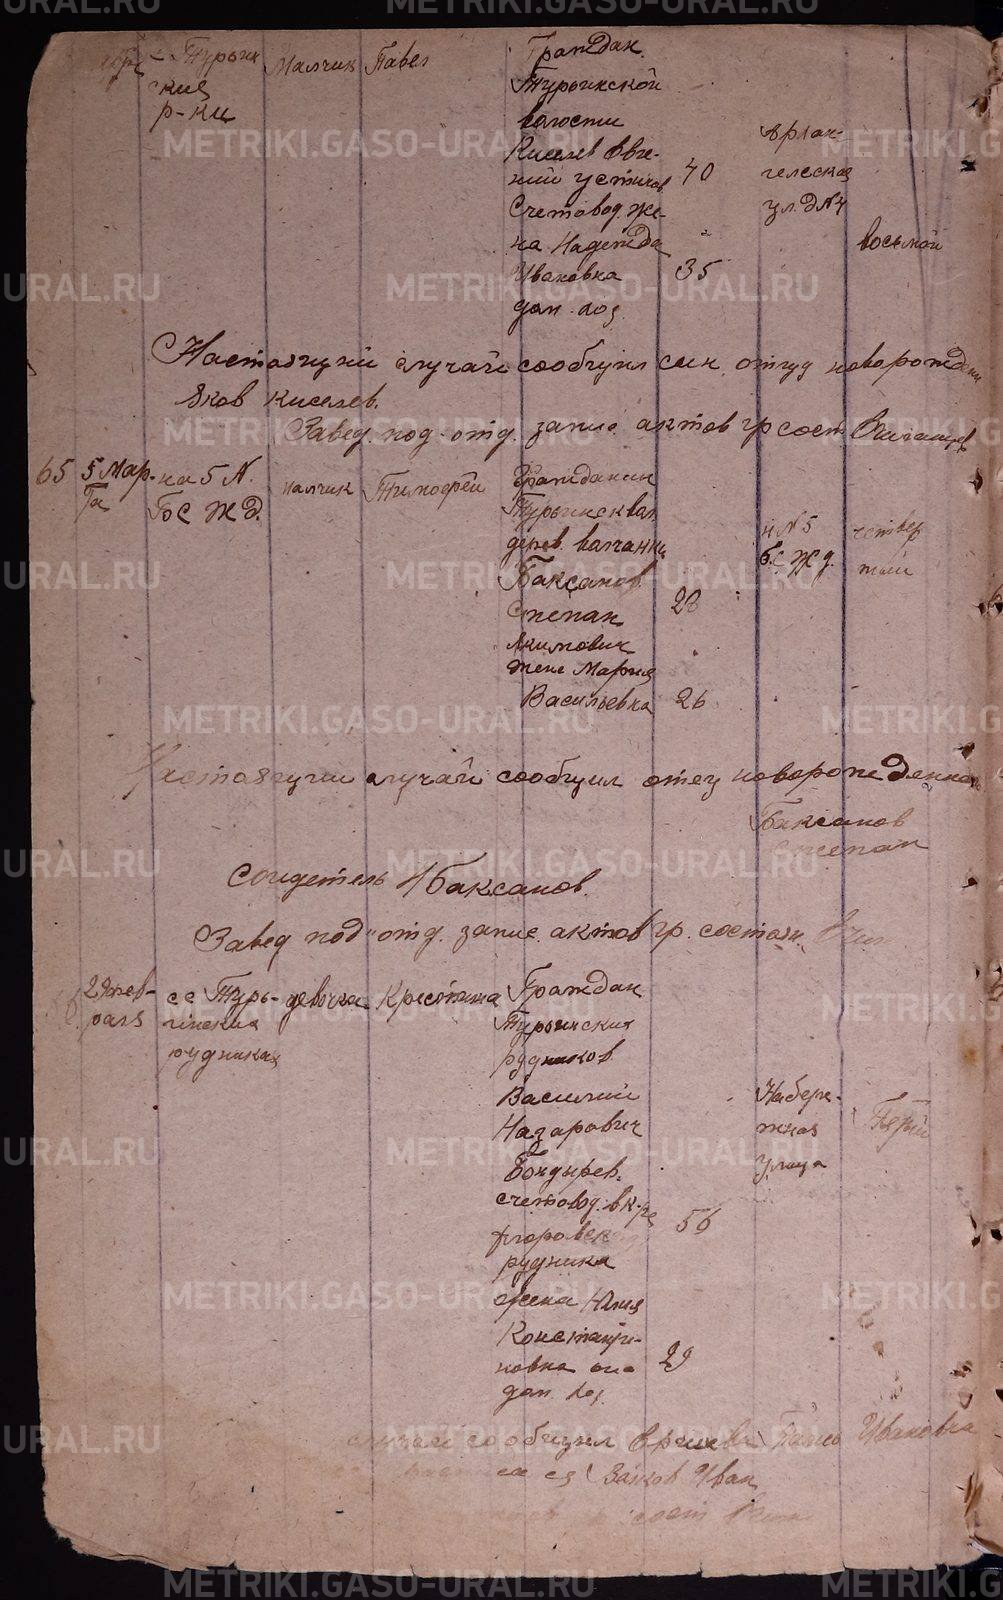 Турьин
ския
р-ки
Малчик
Павел
Граждан.
Турьинской
волости
Киселев Евге-
ний Устинов
Счетовод. Же-
на Надежда
Ивановна
дом. хоз.
40
35
Архан-
гелская
ул. д N 4
восьмой
Настоящий случай сообщил сын отца новорожден
Яков Киселев.
Завед. под-отд. запис. актов гр сост.
65
5 Мар-
та
на 5 N.
Бс Ж д.
малчик
Тимофей
Гражданин
Турьинск вол.
дерев. Волчанки
Баксанов
Степан
Якимович
жене Мария
Васильевна
28
26
н N 5
б.с ж д.
четвер
тый
Настоящий случай сообщил отец новорожденного
Баксанов
Степан
Свидетель Я Баксанов.
Завед под-отд. запис. актов гр. состоян.
29 фев-
раля
се Турь-
инских
рудниках
девочка
Кристина
Граждан
Турьинских
рудников.
Василий
Назарович
Бондырев.
счетовод.
рудника
жена Юлия
Константи-
новна она
дом. хоз.
56
29
Набере-
жная
улица
Первый
случай сообщил
Ивановна
Зайков Иван
METRIKI.GASO-URAL.RU